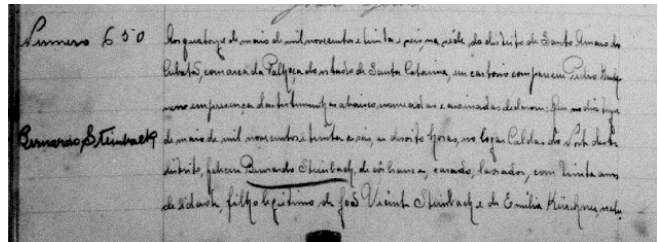 Numero 650
Bernardo Steinbach
Aos quatorze de maio de mil novecentos e trinta e seis, na séde do districto de Santo Amaro do
Cubatão, comarca da Palhoça do estado de Santa Catarina, em cartorio compareceu Pedro
em presença das testemunhas abaixo nomeadas e assinadas declarou: Que no dia treze
de maio de mil novecentos e trinta e seis, as dezoito horas, no logar Caldas do Norte deste
distrito, faleceu Bernardo Steinbach, de côr branca, casado, lavrador, com trinta anos
de idade, filho legitimo de José Vicente Steinbach e de Emilia Kirchner,